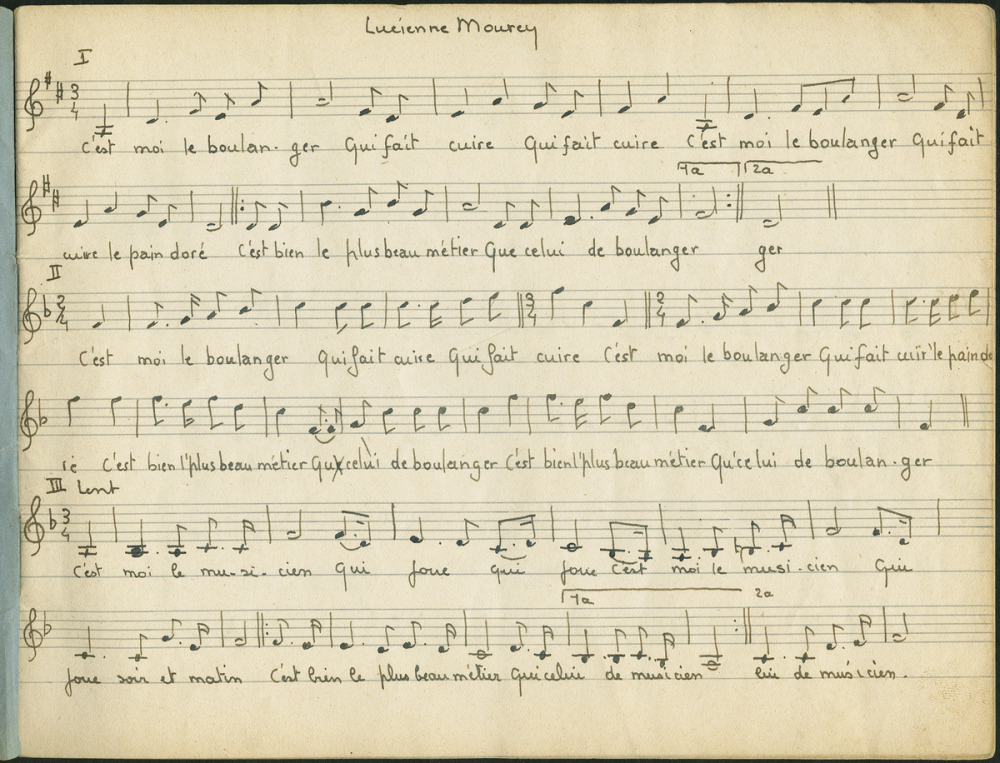 Lucienne Mourey
I
3
4
C'est moi le boulan-ger Qui fait cuire Qui fait cuire C'est moi le boulanger Qui fait
1a 2a
cuire le pain doré C'est bien le plus beau métier Que celui de boulanger ger
II
2
4
3
4
2
4
C'est moi le boulanger Qui fait cuire Qui fait cuire C'est moi le boulanger Qui fait cuir' le pain do
ré C'est bien l'plus beau métier Qu' celui de boulanger C'est bien l'plus beau métier Qu'celui de boulan-ger
III Lent
3
4
C'est moi le mu-si-cien Qui joue qui joue C'est moi le musi-cien Qui
1a 2a
joue soir et matin C'est bien le plus beau métier Qui celui de musicien lui de musicien.